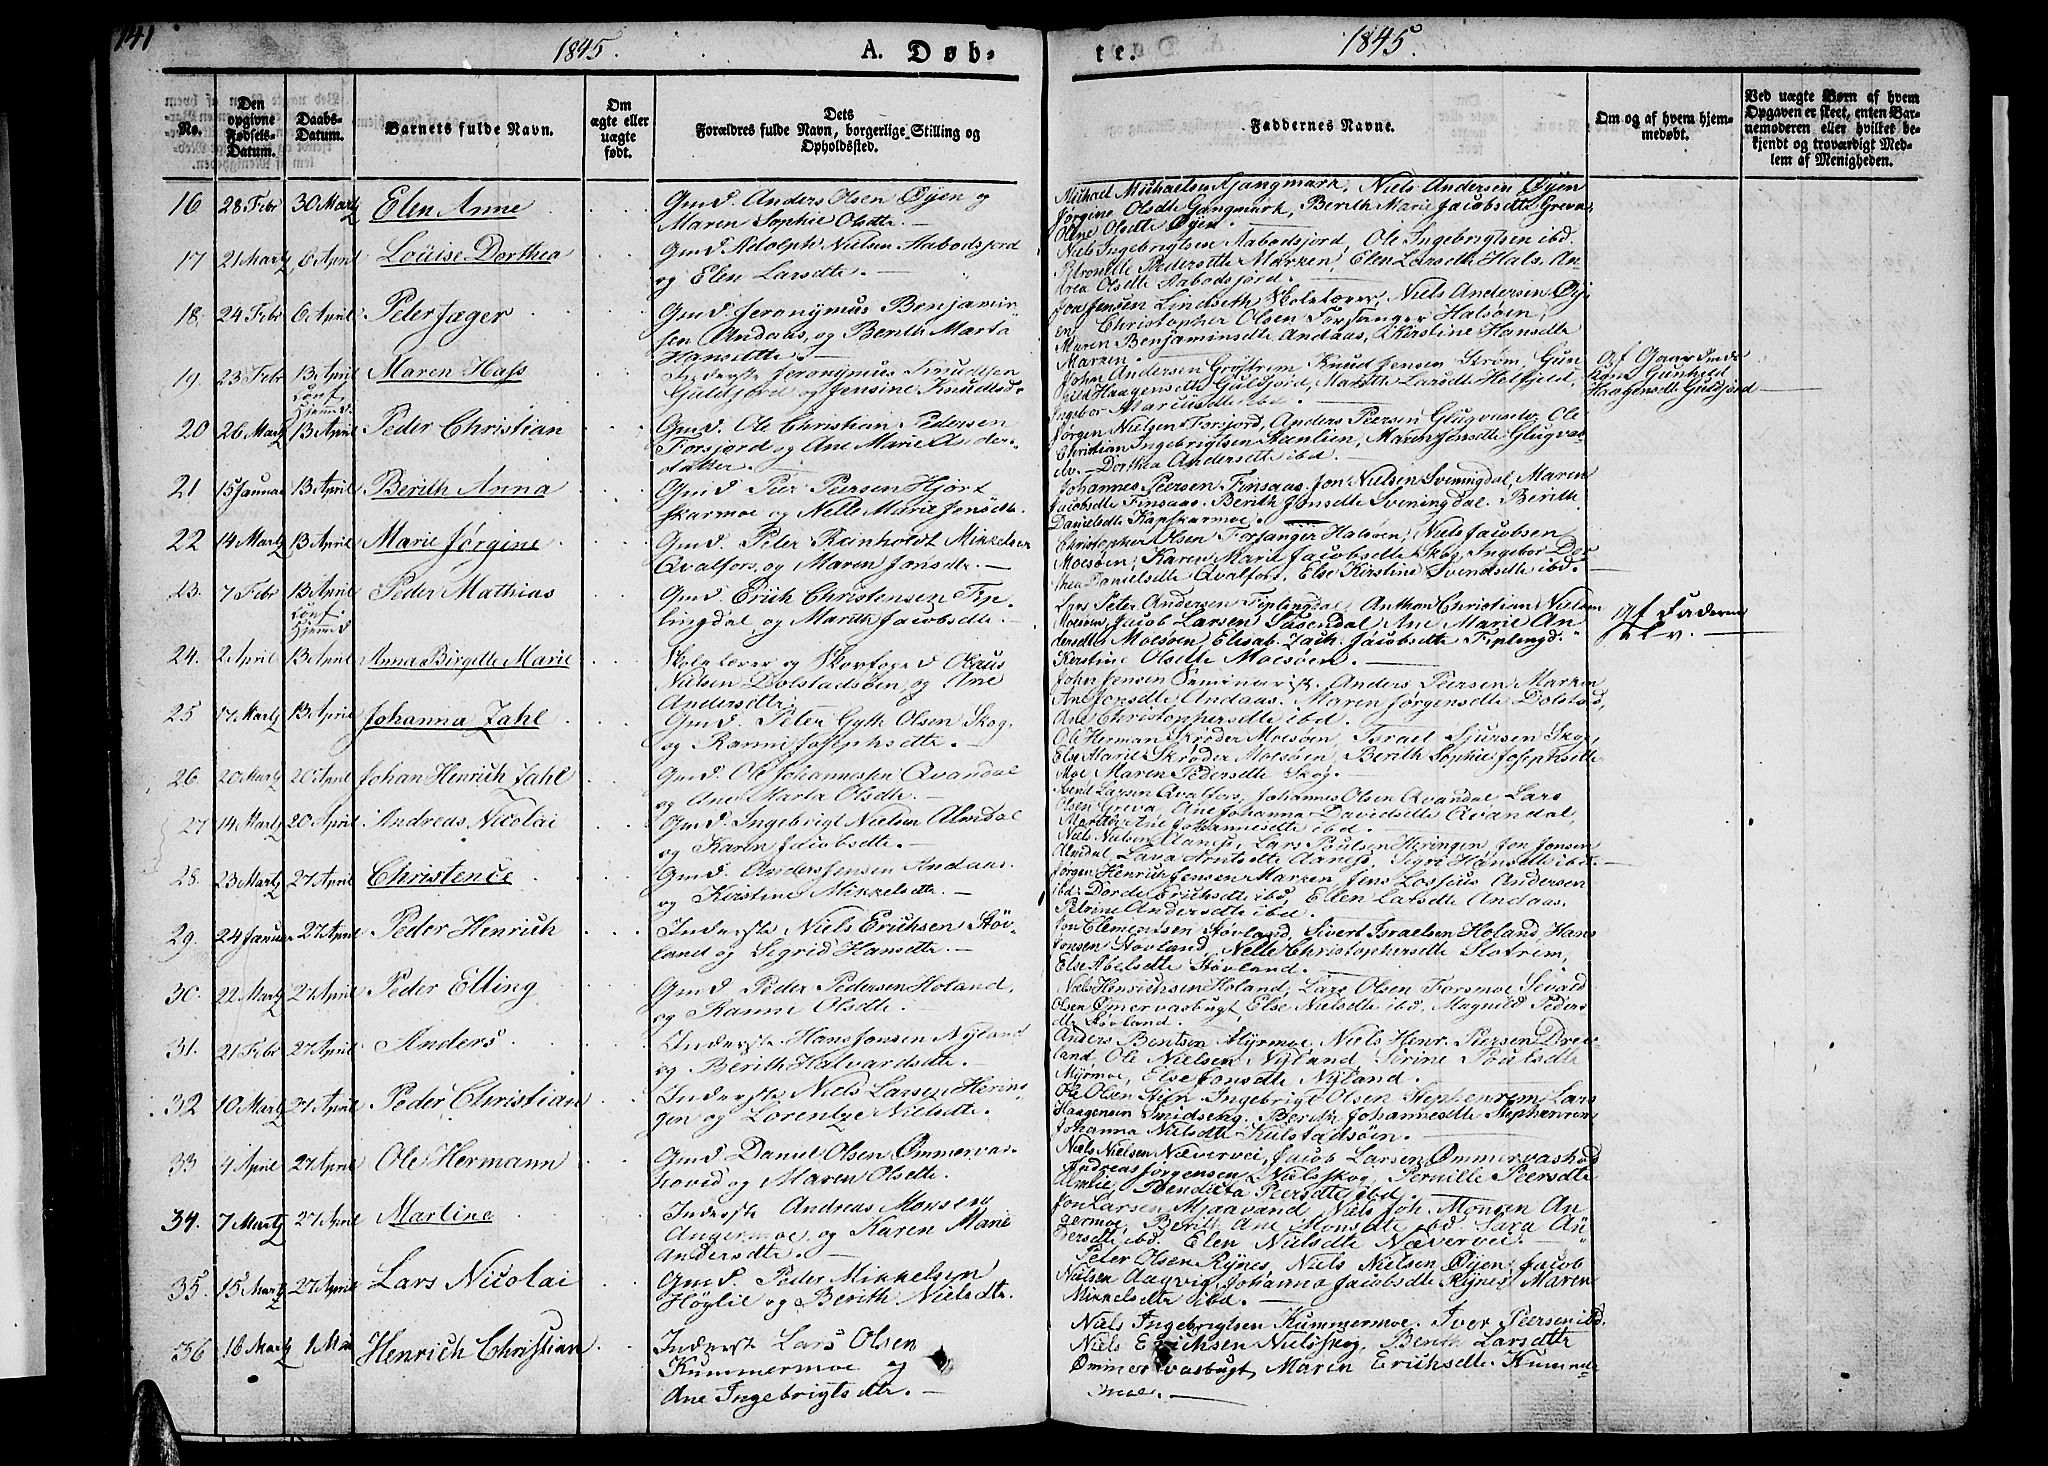 141
1845. A. Døb-
te. 1845.
No.
Den opgivne Fødsels-Datum.
Daabs-Datum.
Barnets fulde Navn.
Om ægte eller uægte født.
Dets Forældres fulde Navn, borgerlige Stilling og Opholdssted.
Faddernes Navne.
Om og af hvem hjem-medøbt.
Ved uægte Børn af hvem Opgaven er skeet, enten Bar-nemoderen eller hvilket be-kjendt og troværdigt Med-lem af Menigheden.
16 28 Febr 30 Martz Elen Anne
Gmd. Anders Olsen Øyen og
Maren Sophie Olsdtr. —
Michael Michaelsen Gangmark, Niels Andersen Øyen
Jørgine Olsdtr Gangmark, Berith Marie Jacobsdtr Greva,
Olsdtr Øyen
17 21 Martz 6 April Louise Dorthea
Gmd. Adolph Nielsen Aabodsjord
og Elen Larsdtr. —
Niels Ingebrigtsen Aabodsjord, Ole Ingebrigtsen ibd.
Petronelle Pedersdtr Marken, Elen Larsdtr Hals, An-
drea Olsdtr Aabodsjord. —
18. 24 Febr 6 April Peter Jæger
Gmd. Jeronymus Benjamin-
sen Andaas, og Berith Marta
Hansdtr. —
Jon Jensen Lindseth Skolelærer, Niels Andersen Øij-
en, Christopher Olsen Forsanger Halsøen,
Maren Benjaminsdtr Andaas, Kirstine Hansdtr
Marken. —
19. 23 Febr 13 April Conf. Hjemmed. Maren Hass
Inderste Jeronymus Knudsen
Guldjord og Jensine Knudsd.
Johan Andersen Knud Jensen Strøm, Gun-
hild Haagensdtr Guldjord, Marith Larsdtr Helfjeld,
Ingebor Marcusdtr ibd. —
Af Gaardmands
Kone Gunhild
Haagensdtr Guldjord
20 26 Martz 13 April Peder Christian
Gmd. Ole Christian Pedersen
Forsjord og Ane Marie Anders-
datter. —
Jørgen Nielsen Forsjord, Anders Peersen Glugvaselv, Ole
Christian Ingebrigtsen Stenlien, Maren Jonsdtr Glugvas-
elv. Dorthea Andersdtr ibd. —
21 15 Januar 13 April Berith Anna
Gmd. Peer Peersen Hjort
skarmoe og Nelle Marie Jonsdtr.
Johannes Peersen Finsaas. Jon Nielsen Sveningdal, Maren
Jacobsdtr Finsaas. Berith Jonsdtr Sveningdal. Berith
Danielsdtr Kapskarmoe. —
22 14 Martz 13 April Marie Jørgine
Gmd. Peter Ranholdt Mikkelsen
Qvalfors, og Maren Jonsdtr. —
Christopher Olsen Forsanger Halsøen, Niels Jacobsen
Moesøen, Karen Marie Jacobsdtr Skog, Ingebor Dor-
thea Danielsdtr Qvalfors, Else Kirstine Svendsdtr ibd. —
23. 7 Febr 13 April Conf. Hjemmed Peder Mathias
Gmd. Erich Christensen Fip-
lingdal og Marith Jacobsdtr. —
Lars Peter Andersen Fiplingdal, Anthon Christian Nielsen
Moesøen, Jacob Larsen Tusendal, Ane Marie An-
dersdtr Moesøen Elisab. Zach. Jacobsdtr Fiplingd.
Af Faderen
selv. —
24. 2 April 13 April Anna Birgitte Marie
Skolelærer og Skovfoged Olaus
Nielsen Dolstadsøen, og Ane
Andersdtr. —
Kerstine Olsdtr Moesøen. —
John Jensen Seminarist. Anders Peersen Marken
Ane Jonsdtr Andaas. Maren Jørgensdtr Dolstad,
Ane Christophersdtr ibd. —
25 17 Martz 13 April Johanna Zahl
Gmd. Peter Gytte Olsen Skog,
og Ranni Josephsdtr. —
Ole Herman Skrøder Moesøen, Israel Sjursen Skog,
Else Marie Skrøder Moesøen, Berith Sophie Josephsdtr
Moe, Maren Pedersdtr Skog. —
26 20 Martz 20 April Johan Henrich Zahl
Gmd. Ole Johannessen Qvandal
og Ane Marta Olsdtr. —
Larsen Qvalfors, Johannes Olsen Qvandal, Lars
Olsen Greva, Ane Johanna Davidsdtr Qvandal,
Ane Johannesdtr ibd. —
27 14 Martz 20 April Andreas Nicolai
Gmd. Ingebrigt Nielsen Almdal
og Karen Jacobsdtr. —
Niels Nielsen Aarnes, Lars Poulsen Heringen Jon Jonsen
Almdal, Lava Arntsdtr Aarnes, Segri Hansdtr ibd. —
28. 23 Martz 27 April Christence
Gmd. Anders Jensen Andaas
og Kirstine Mikkelsdtr. —
Jørgen Henrich Jensen Marken, Jens Andersen
ibd. Dorde Erichsdtr ibd, Ellen Larsdtr Andaas.
Petrine Andersdtr ibd. —
29. 24 Januar 27 April Peder Henrich
Inderste Niels Erichsen Støv-
land og Segrid Hansdtr. —
Jon Clementsen Støvland, Sivert Israelsen Holand, Hans
Jonsen Støvland, Nelle Christophersdtr Slotrem,
Else Abelsdtr Støvland. —
30. 22 Martz 27 April Peder Elling
Gmd. Peder Pedersen Holand,
og Ranni Olsdtr. —
Niels Henrichsen Holand, Lars Olsen Forsmoe, Sivald
Olsen Ømervasbugt, Else Nielsdtr ibd. Magnild Peders-
dtr Støvland. —
31. 21 Febr 27 April Anders
Inderste Hans Jonsen Nyland
og Berith Halvardsdtr. —
Anders Bentsen Myrmoe, Niels Henr. Peersen Drev-
land, Ole Nielsen Nyland Serine Poulsdtr
Myrmoe, Else Jonsdtr Nyland. —
32 10 Martz 27 April Peder Christian
Inderste Niels Larsen Herin-
gen og Lorentze Nielsdtr. —
Ole Olsen Stien, Ingebrigt Olsen Stephenrem, Lars
Haagensen Smidsekg. Berith Johannesdtr Stephenrem
Johanna Nielsdtr Kulstadsøen. —
33 4 April 27 April Ole Hermann
Gmd Daniel Olsen Ømmervas-
hoved og Maren Olsdtr.
Niels Nielsen Nævervei, Jacob Larsen Ømmervashod
Andreas Jørgensen Nielsskog, Pernille Peersdtr
Almlie Bendicta Peersdtr ibd. —
34. 7 Martz 27 April Martine
Inderste Andreas Monsen
Angermoe, og Karen Marie
Andersdtr. —
Jon Larsen Mjaavand, Niels Joh. Monsen An-
germoe, Beritt Ane Monsdtr ibd. Sara An-
dersdtr ibd. Elen Nielsdtr Nævervei. —
35 15 Martz 27 April Lars Nicolai
Gmd. Peder Mikkelsen
Høylie og Berith Nielsdtr.
Peter Olsen Rynes, Niels Nielsen Øyen, Jacob
Nielsen Aagvig, Johanna Jacobsdtr Rynes, Maren
Mikkelsdtr ibd. —
36 16 Martz 1 Mai Henrich Christian
Inderste Lars Olsen
Kummermoe og
Ane Ingebrigtsdtr. —
Niels Ingebrigtsen Kummermoe. Iver Peersen ibd.
Niels Erichsen Nielsskog, Berith Larsdtr
Ømmervasbugt Maren Erichsdtr. Kumme-
moe. —